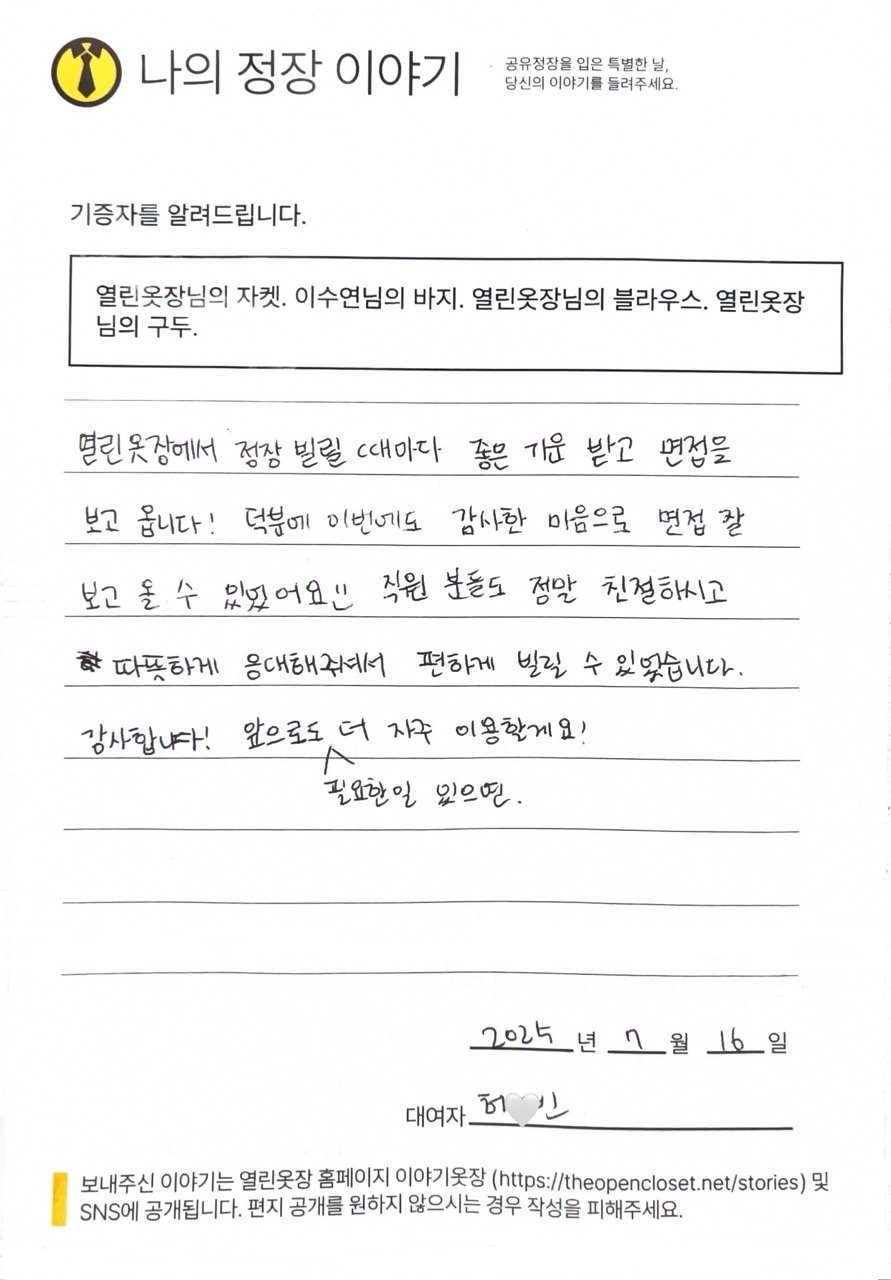 나의 정장 이야기
공유정장을 입은 특별한 날,
당신의 이야기를 들려주세요.
기증자를 알려드립니다.
열린옷장님의 자켓. 이수연님의 바지. 열린옷장님의 블라우스. 열린옷장
님의 구두.
열린옷장에서 정장 빌릴 때마다 좋은 기운 받고 면접을
보고 옵니다! 덕분에 이번에도 감사한 마음으로 면접 잘
보고 올 수 있었어요!! 직원 분들도 정말 친절하시고
따뜻하게 응대해주셔서 편하게 빌릴 수 있었습니다.
감사합니다! 앞으로도 더 자주 이용할게요!
필요한일 있으면.
2025 년 7 월 16 일
대여자 허 빈
보내주신 이야기는 열린옷장 홈페이지 이야기옷장 (https://theopencloset.net/stories) 및
SNS에 공개됩니다. 편지 공개를 원하지 않으시는 경우 작성을 피해주세요.